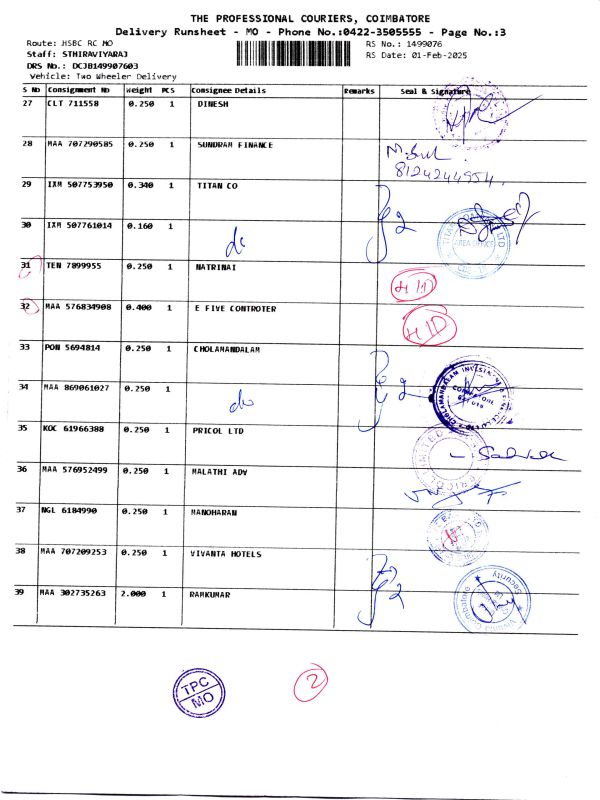 THE PROFESSIONAL COURIERS, COIMBATORE
Delivery Runsheet - MO - Phone No.:0422-3505555 - Page No.:3
Route: HSBC RC MO RS No.: 1499076
Staff: STHIRAVIYARAJ RS Date: 01-Feb-2025
DRS No.: DCJB149907603
Vehicle: Two Wheeler Delivery
S No Consignment No Weight PCS Consignee Details Remarks Seal & Signature
27 CLT 711558 0.250 1 DINESH
28 MAA 707290585 0.250 1 SUNDRAM FINANCE
8124244954
29 IXM 507753950 0.340 1 TITAN CO
30 IXM 507761014 0.160 1
do
AREA OFFICE
31 TEN 7899955 0.250 1 NATRINAI
32 MAA 576834908 0.400 1 E FIVE CONTROTER
33 PON 5694814 0.250 1 CHOLAMANDALAM
34 MAA 869061027 0.250 1
do
35 KOC 61966388 0.250 1 PRICOL LTD
36 MAA 576952499 0.250 1 MALATHI ADV
37 NGL 6184990 0.250 1 MANOHARAN
38 MAA 707209253 0.250 1 VIVANTA HOTELS
39 MAA 302735263 2.000 1 RAMKUMAR
Security
TPC
MO
2